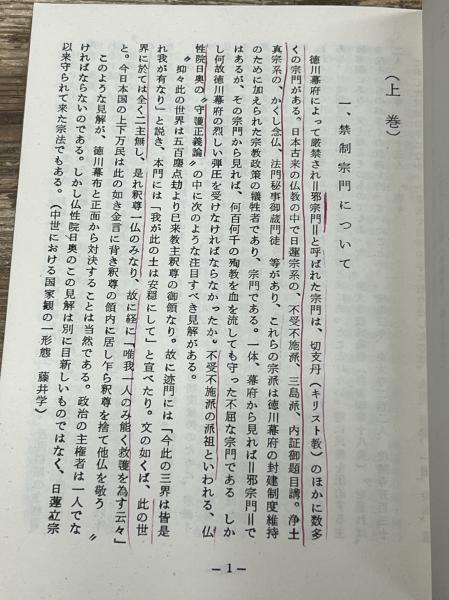 (上 巻)
一、禁制宗門について
徳川幕府によって厳禁され=邪宗門=と呼ばれた宗門は、切支丹(キリスト教)のほかに数多
くの宗門がある。日本古来の仏教の中で日蓮宗系の、不受不施派、三鳥派、内証御題目講。浄土
真宗系の、かくし念仏、法門秘事御蔵門徒 等があり、これらの宗派は徳川幕府の封建制度維持
のために加えられた宗教政策の犠牲者であり、宗門である。一体、幕府から見れば=邪宗門=で
はあるが、その宗門から見れば、何百何千の殉教を血を流しても守った不屈な宗門である しか
し何故徳川幕府の烈しい弾圧を受けなければならなかったか。不受不施派の派祖といわれる、仏
性院日奥の〝守護正義論〟の中に次のような注目すべき見解がある。
〝抑々此の世界は五百塵点劫より已来教主釈尊の御領なり。故に迹門には「今此の三界は皆是
れ我が有なり」と説き、本門には「我が此の土は安穏にして」と宣べたり。文の如くば、此の世
界に於ては全く二主無し、是れ釈尊一仏のみなり、故に経に「唯我一人のみ能く救護を為す云々」
と。今日本国の上下万民は此の如き金言に背き釈尊の領内に居し乍ら釈尊を捨て他仏を敬う〟
このような見解が、徳川幕布と正面から対決することは当然である。政治の主権者は一人でな
ければならないのである。しかし仏性院日奥のこの見解は別に目新しいものではなく、日蓮立宗
以来守られて来た宗法でもある。(中世における国家観の一形態 藤井学)
－1－